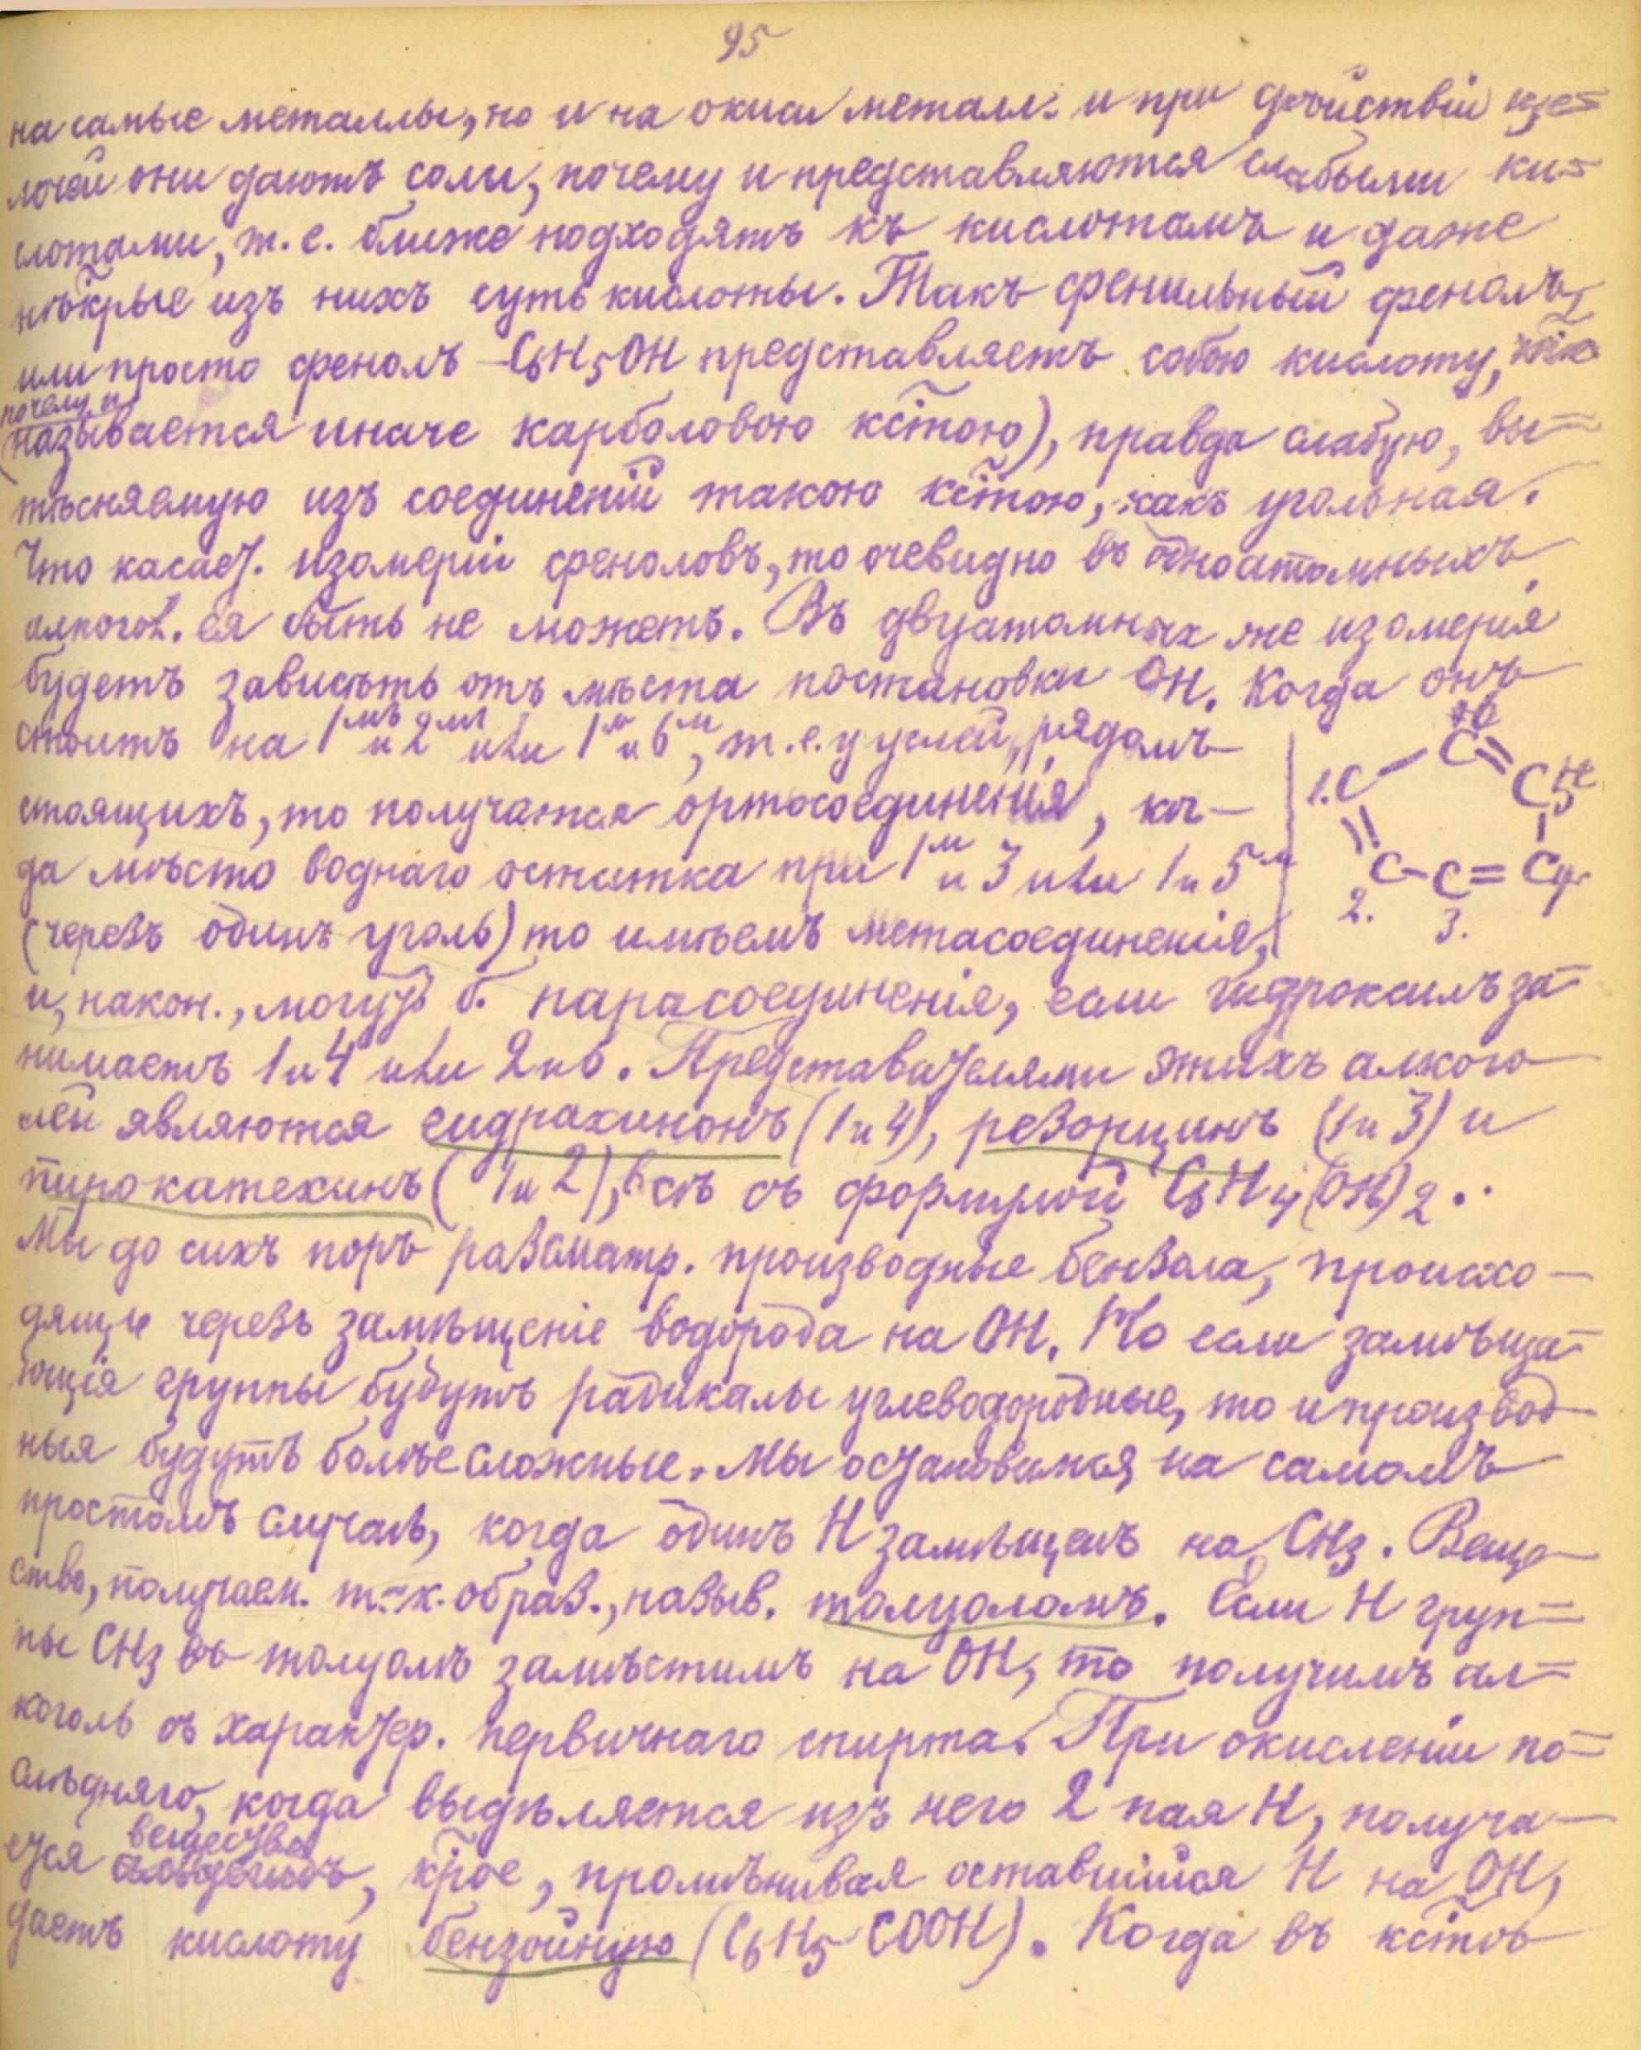 95
на самые металлы, но и на окиси металл. и при дѣйствіи ще-
лочей они даютъ соли, почему и представляются слабыми ки-
слотами, т. е. ближе подходятъ къ кислотамъ и даже
нѣкрые изъ нихъ суть кислоты. Такъ фенильный фенолъ,
или просто фенолъ - C6H5OH представляетъ собою кислоту,
почему и
(называется иначе карболовою кстою), правда слабую, вы-
тѣсняемую изъ соединеній такою кстою, какъ угольная.
Что касает. изомеріи феноловъ, то очевидно въ одноатомныхъ
алкогол. ея быть не можетъ. Въ двуатомных же изомерія
будетъ зависѣть отъ мѣста постановки OH. Когда онъ
стоитъ на 1мъ и 2мъ или 1м и 6м, т. е. у углей, рядомъ
стоящихъ, то получатся ортосоединенія, ког-
да мѣсто воднаго остатка при 1м и 3 или 1 и 5м
(черезъ одинъ уголь) то имѣемъ метасоединенія,
6C
1.C C5
C - C = C4
2. 3.
и, након., могутъ б. парасоединенія, если гидроксилъ за-
нимаетъ 1 и 4 или 2 и 6. Представителями этихъ алкого
лей являются гидрахинонъ (1 и 4), резорцинъ (1 и 3) и
пирокатехинъ (1 и 2), всѣ съ формулой C6H4(OH)2..
Мы до сихъ поръ разсматр. производные бензола, происхо-
дящіе черезъ замѣщеніе водорода на OH. Но если замѣща-
ющія группы будутъ радикалы углеводородные, то и производ-
ныя будутъ болѣе сложные. Мы остановимся на самомъ
простомъ случаѣ, когда одинъ H замѣщенъ на CH3. Веще-
ство, получаем. т-к. образ., назыв. толуоломъ. Если H груп-
пы CH3 въ толуолѣ замѣстимъ на OH, то получимъ ал-
коголь съ характер. первичнаго спирта. При окисленіи по-
слѣдняго, когда выдѣляется изъ него 2 пая H, получа-
вещество
ется альдегидъ, крое, промѣнивая оставшійся H на OH,
даетъ кислоту бензойную (C6H5 COOH). Когда въ кстѣ